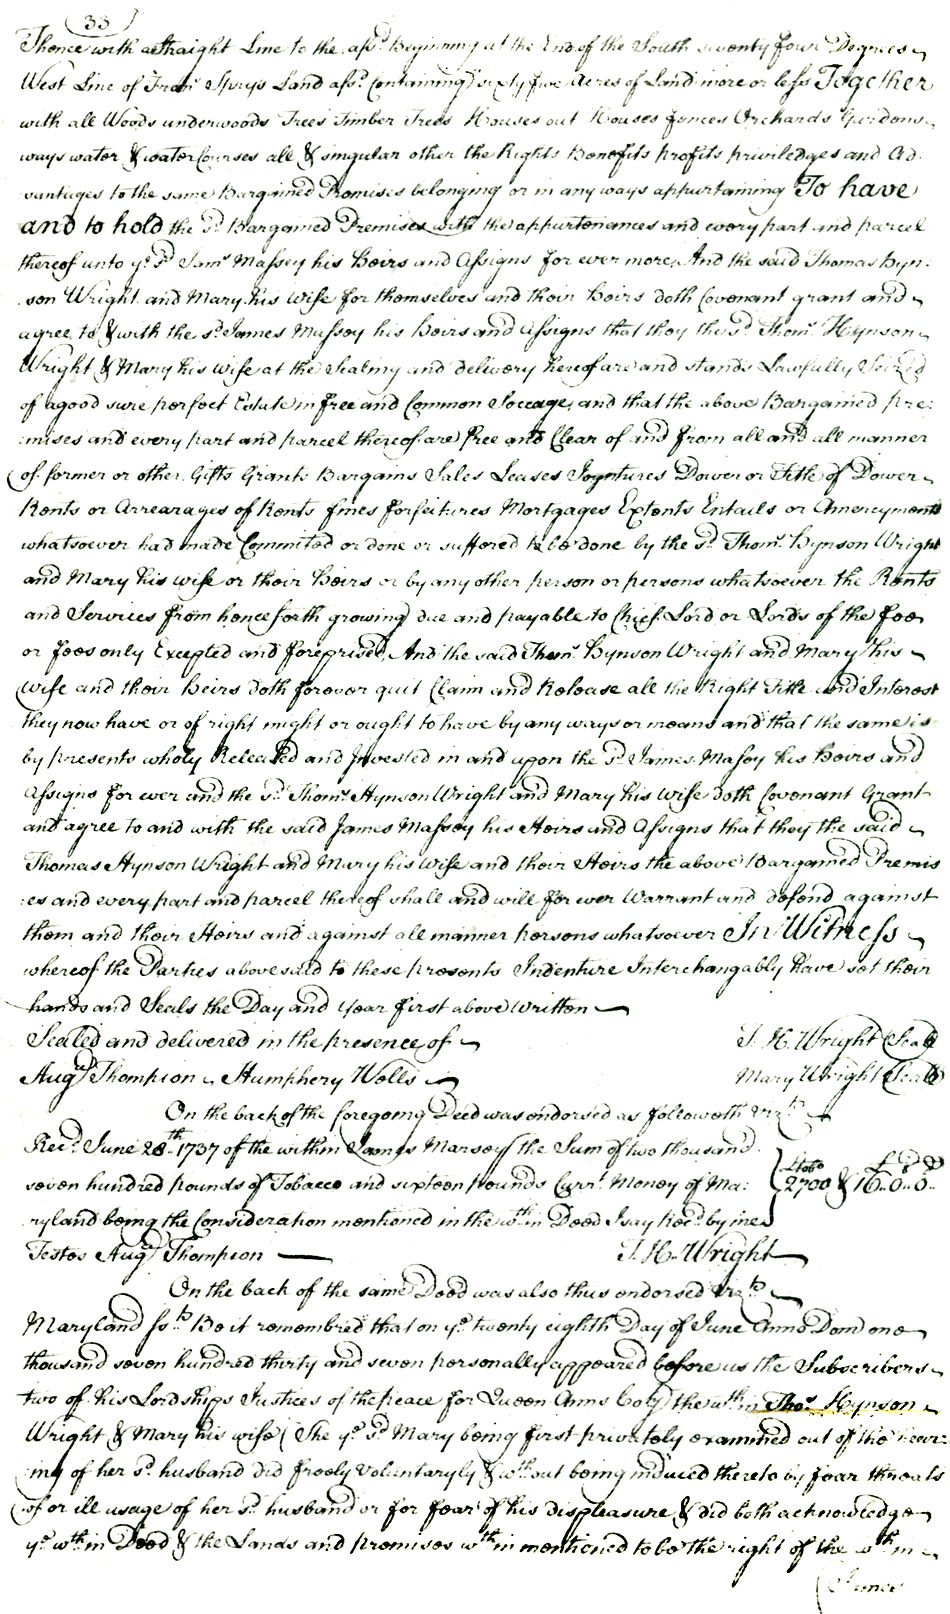 33
Thence with a straight Line to the afsd. Beginning at the End of the South seventy four Degrees
West Line of Frans. Sprys Land afsd. Containing sixty five Acres of Land more or less Together
with all Woods underwoods Trees Timber Trees Houses out Houses fences Orchards Gardens
ways water & water Courses all & singular other the Rights Benefits profits priviledges and Ad:
vantages to the same Bargained Premises belonging or in any ways appurtaining To have
and to hold the sd. Bargained Premises with the appurtenances and every part and parcel
thereof unto ye. sd. Jams. Massey his Heirs and Assigns for ever more, And the said Thomas Hyn:
son Wright and Mary his wife for themselves and their Heirs doth Covenant grant and
agree to & with the sd. James Massey his Heirs and Assigns that they the sd. Thoms. Hynson
Wright & Mary his wife at the Sealing and delivery hereof are and stands Lawfully Seized
of a good sure perfect Estate in free and Common Soccage, and that the above Bargained pre:
:mises and every part and parcel thereof are free and Clear of and from all and all manner
of former or other Gifts Grants Bargains Sales Leases Joyntures Dower or Title of Dower
Rents or Arrearages of Rents fines forfeitures Mortgages Extents Entails or Amercyments
whatsoever had made Commited or done or suffered to be done by the sd. Thoms. Hynson Wright
and Mary his wife or their Heirs or by any other person or persons whatsoever the Rents
and Services from hence forth growing due and payable to Chief Lord or Lords of the fee
or fees only Excepted and foreprised, And the said Thoms. Hynson Wright and Mary his
wife and their Heirs doth forever quit Claim and Release all the Right Title and Interest
they now have or of right might or ought to have by any ways or means and that the same is
by presents wholy Released and Invested in and upon the sd. James Massey his Heirs and
Assigns for ever and the sd. Thoms. Hynson Wright and Mary his Wife doth Covenant Grant
and agree to and with the said James Massey his Heirs and Assigns that they the said
Thomas Hynson Wright and Mary his wife and their Heirs the above Bargained Premis
:es and every part and parcel thereof shall and will for ever Warrant and defend against
them and their Heirs and against all manner persons whatsoever In Witness
whereof the Parties abovesaid to these presents Indenture Interchangably have set their
hands and Seals the Day and year first above written
Sealed and delivered in the presence of T. H. Wright (Seal)
Augt. Thompson Humphery Wells Mary Wright (Seal)
On the back of the foregoing Deed was endorsed as followeth vizt.
Recd. June 28th. 1737 of the within James Marsey the Sum of two thousand
seven hundred pounds of Tobacco and sixteen pounds Currt. Money of Ma: lb Tobo 2700 & £ s d 16..0..0..
ryland being the Consideration mentioned in the wthin Deed I say Recd. by me
Testes Augt. Thompson T. H. Wright
On the back of the same Deed was also thus endorsed vizt.
Maryland fst. Be it remembred that on ye. twenty eighth Day of June Anno Dom one
thousand seven hundred thirty and seven personally appeared before us the Subscribers
two of his Lordships Justices of the peace for Queen Anns Coty the wthin Thos. Hynson
Wright & Mary his wife (She ye. sd. Mary being first privately examined out of the hear:
:ing of her sd. husband did freely Voluntaryly & wthout being induced thereto by fear threats
of or ill usage of her sd. husband or for fear of his displeasure & did both acknowledge
ye. wthin Deed & the Lands and premises wthin mentioned to be the right of the wthin
James